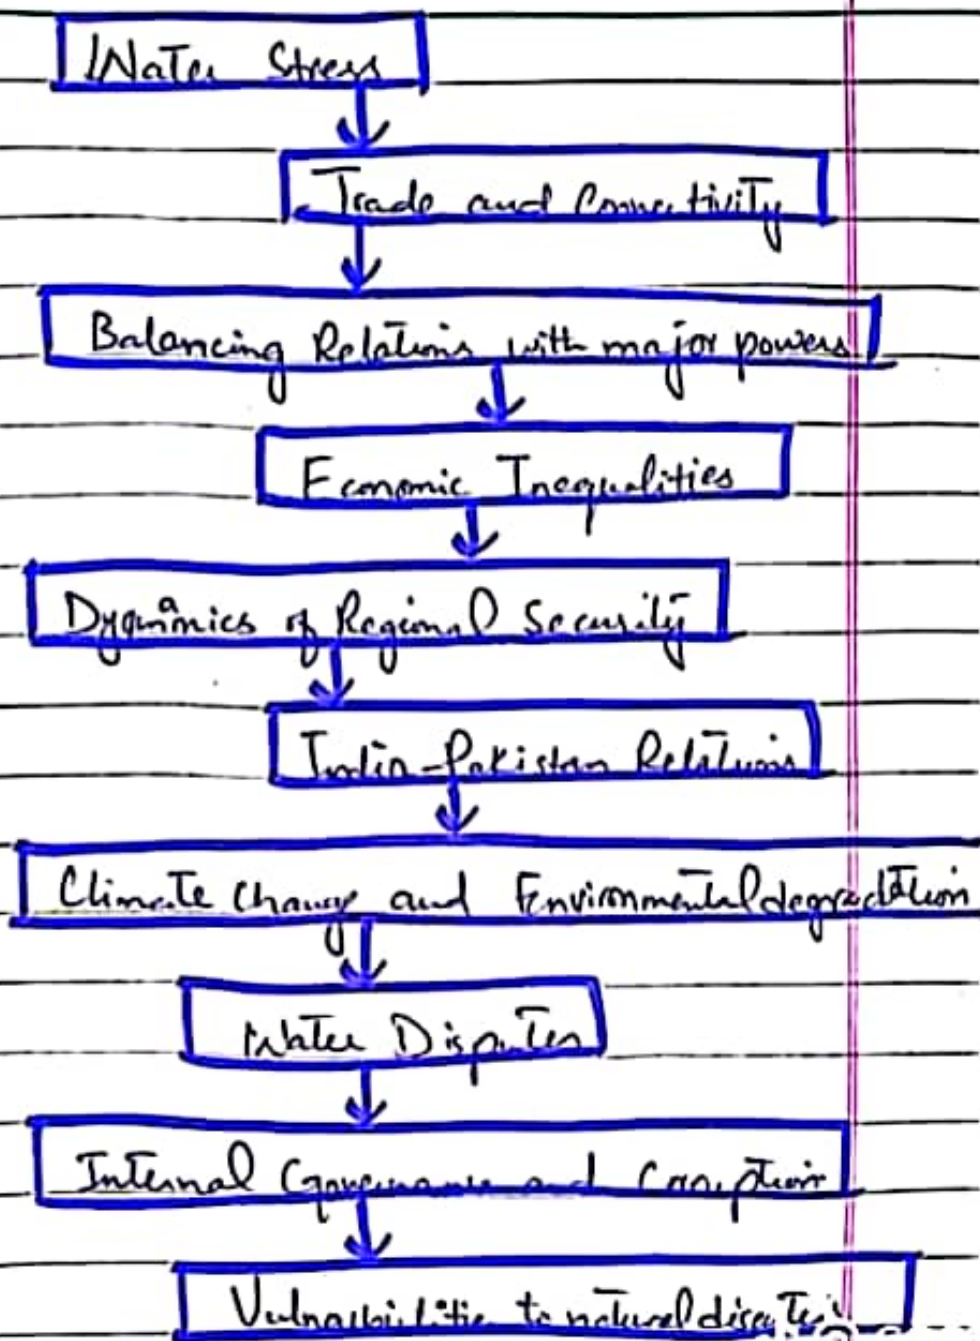 Water Stress
Trade and Connectivity
Balancing Relations with major powers
Economic Inequalities
Dynamics of Regional Security
India-Pakistan Relations
Climate Change and Environmental degradation
Water Disputes
Internal Governance and Corruption
Vulnerabilities to natural disasters